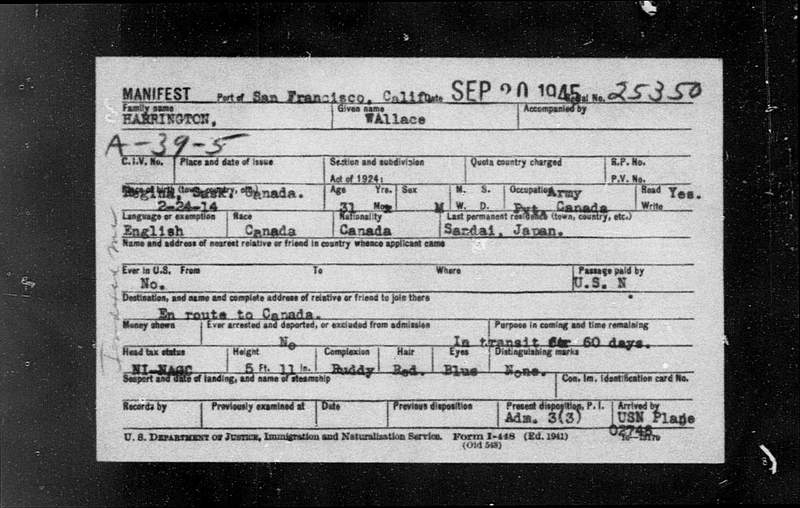 MANIFEST Port of San Francisco, Calif. Date SEP 20 1945 Serial No. 25350
Family name Given name Accompanied by
HARRINGTON, WAllace
A-39-5
C.I.V. No. Place and date of issue Section and subdivision Quota country charged R.P. No.
Act of 1924: P.V. No.
Place of birth (town, country, etc.) Age Yrs. Sex M. S. Occupation Army Read Yes.
Regina, Sask. Canada.
2-24-14 31 Mos M W. D. Pvt. Canada Write
Language or exemption Race Nationality Last permanent residence (town, country, etc.)
English Canada Canada Sardai, Japan.
Name and address of nearest relative or friend in country whence applicant came
Ever in U.S. From To Where Passage paid by
No. U.S. N
Destination, and name and complete address of relative or friend to join there
En route to Canada.
Money shown Ever arrested and deported, or excluded from admission Purpose in coming and time remaining
No In transit for 60 days.
Head tax status Height Complexion Hair Eyes Distinguishing marks
NI-NAGC 5 Ft. 11 In. Ruddy Red. Blue None.
Seaport and date of landing, and name of steamship Con. Im. Identification card No.
Records by Previously examined at Date Previous disposition Present disposition, P. I. Arrived by
Adm. 3(3) USN Plane
02748
U. S. DEPARTMENT OF JUSTICE, Immigration and Naturalization Service. Form I-448 (Ed. 1941)
(Old 548)